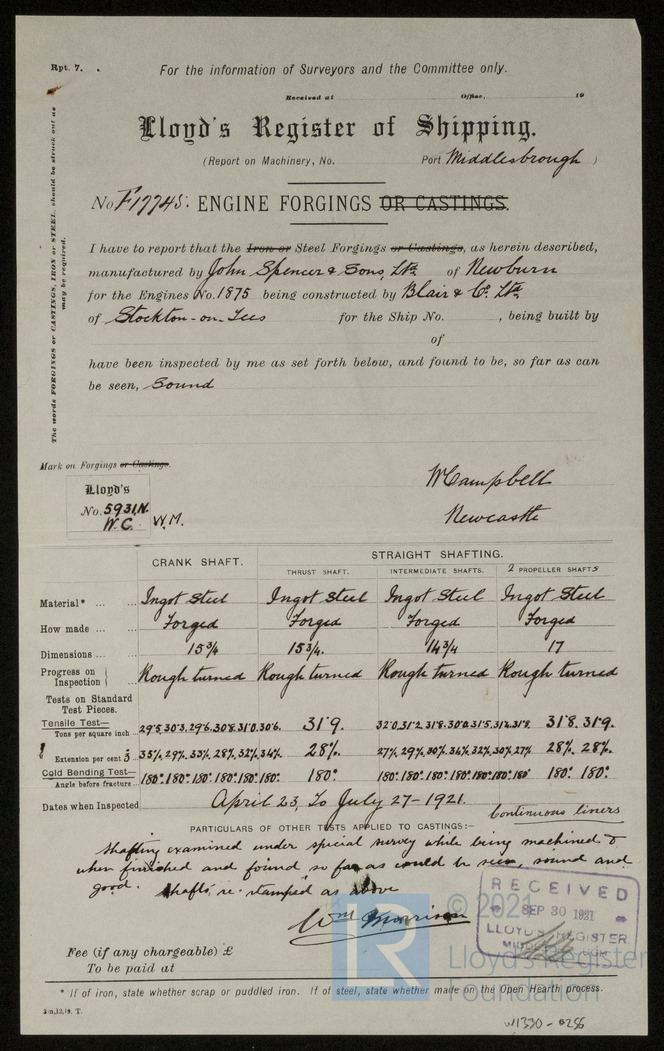 Rpt. 7.
For the information of Surveyors and the Committee only.
Received at Office, 19
Lloyd's Register of Shipping.
(Report on Machinery, No. Port Middlesbrough )
No F17745. ENGINE FORGINGS OR CASTINGS.
The words FORGINGS or CASTINGS, IRON or STEEL, should be struck out as
may be required.
I have to report that the Iron or Steel Forgings or Castings, as herein described,
manufactured by John Spencer & Sons, Ltd. of Newburn
for the Engines No. 1875 being constructed by Blair & Co. Ltd.
of Stockton-on-Tees for the Ship No. , being built by
of
have been inspected by me as set forth below, and found to be, so far as can
be seen, Sound
Mark on Forgings or Castings.
Lloyd's
No. 5931.N.
W.C. W.M.
W Campbell
Newcastle
CRANK SHAFT. STRAIGHT SHAFTING.
THRUST SHAFT. INTERMEDIATE SHAFTS. 2 PROPELLER SHAFTS
Material* ... Ingot Steel Ingot Steel Ingot Steel Ingot Steel
How made ... Forged Forged Forged Forged
Dimensions ... 15 3/4 15 3/4. 14 3/4 17
Progress on Inspection Rough turned Rough turned Rough turned Rough turned
Tests on Standard
Test Pieces.
Tensile Test—
Tons per square inch 29.5 30.3. 29.6. 30.8. 31.0. 30.6. 31.9. 32.0. 31.2. 31.8. 30.0. 31.5. 31.4. 31.8. 31.8. 31.9.
Extension per cent 35% 29%. 33%. 28%. 32% 34% 28%. 27%. 29%. 30% 34% 32% 30% 27% 28%. 28%.
Cold Bending Test—
Angle before fracture 180° 180° 180° 180° 180° 180° 180° 180° 180° 180° 180° 180° 180° 180° 180° 180°
Dates when Inspected April 23, to July 27-1921.
Continuous liners
PARTICULARS OF OTHER TESTS APPLIED TO CASTINGS:—
Shafting examined under special survey while being machined &
when finished and found so far as could be seen, sound and
good. Shafts re-stamped as above
Wm Morrison
RECEIVED
SEP 30 1921
LLOYD'S REGISTER
© 2021
Lloyd's Register
Foundation
Fee (if any chargeable) £
To be paid at
* If of iron, state whether scrap or puddled iron. If of steel, state whether made on the Open Hearth process.
W1330-0256